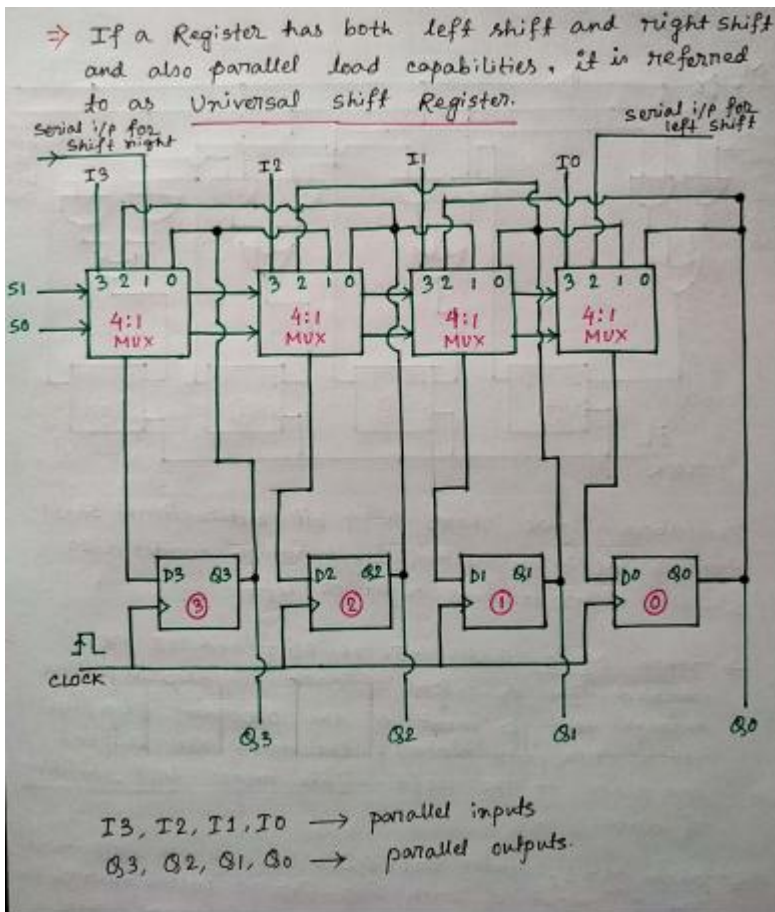 ⇒ If a Register has both left shift and right shift
and also parallel load capabilities, it is referred
to as Universal Shift Register.
serial i/p for
shift right
serial i/p for
left shift
I3 I2 I1 I0
S1
S0
3 2 1 0 3 2 1 0 3 2 1 0 3 2 1 0
4:1 4:1 4:1 4:1
MUX MUX MUX MUX
D3 Q3 D2 Q2 D1 Q1 D0 Q0
3 2 1 0
CLOCK
Q3 Q2 Q1 Q0
I3, I2, I1, I0 → parallel inputs
Q3, Q2, Q1, Q0 → parallel outputs.